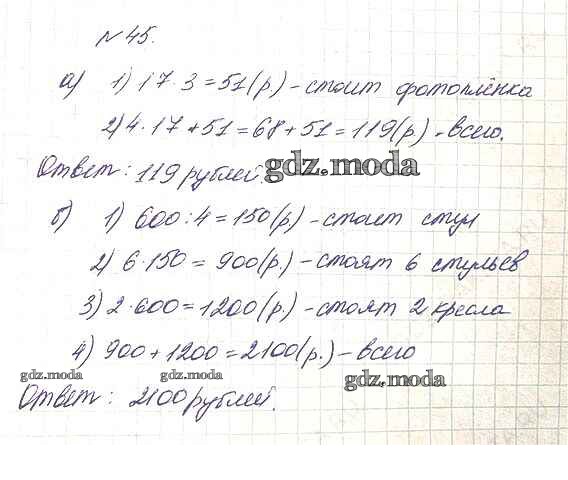 №45.
а) 1) 17·3=51(р) - стоит фотоплёнка
2) 4·17+51=68+51=119(р) - всего.
Ответ: 119 рублей.
gdz.moda
б) 1) 600:4=150(р) - стоит стул
2) 6·150=900(р.) - стоят 6 стульев
3) 2·600=1200(р.) - стоят 2 кресла
4) 900+1200=2100(р.) - всего
gdz.moda gdz.moda gdz.moda
Ответ: 2100 рублей.